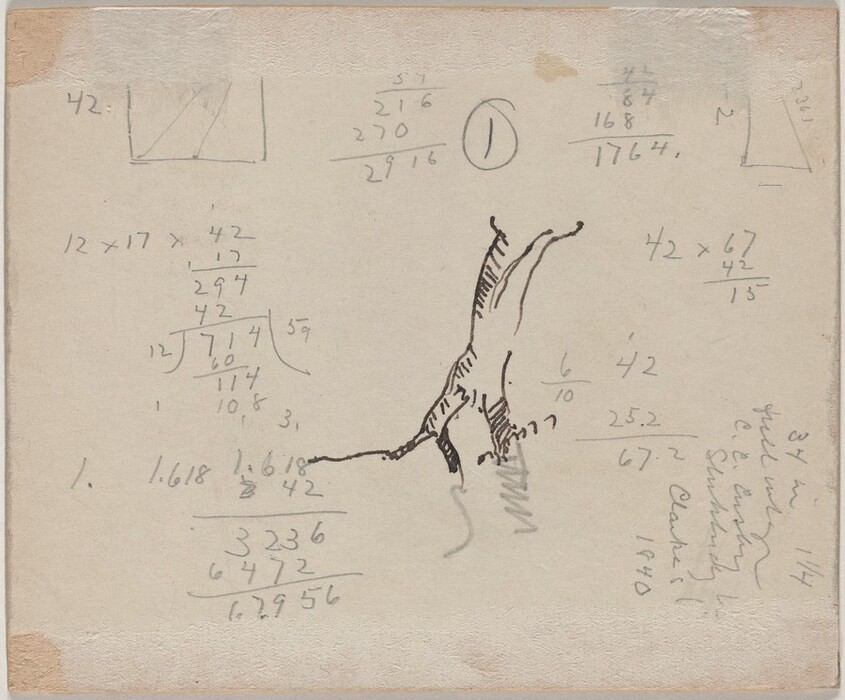 42.
54
216
270
2916
1
42
84
168
1764.
2
12 x 17 x 42
17
294
42
12 714 59
60
114
108
3.
42 x 67
42
15
6
10
42
25.2
67
1.
1.618 1.618
42
3236
6472
67956
34 in 1/4
C. E.
Clarke's
1840